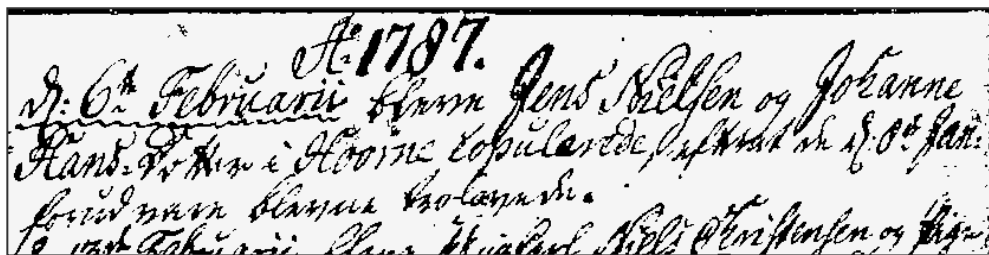 Aº 1787.
d: 6te Februarii bleve Jens Nielsen og Johanne
Hans-Dotter i Hoorne Copulerede, efterat de d. 8de Jan:
forud vare blevne trolovede.
Februarii bleve Niels Christensen og